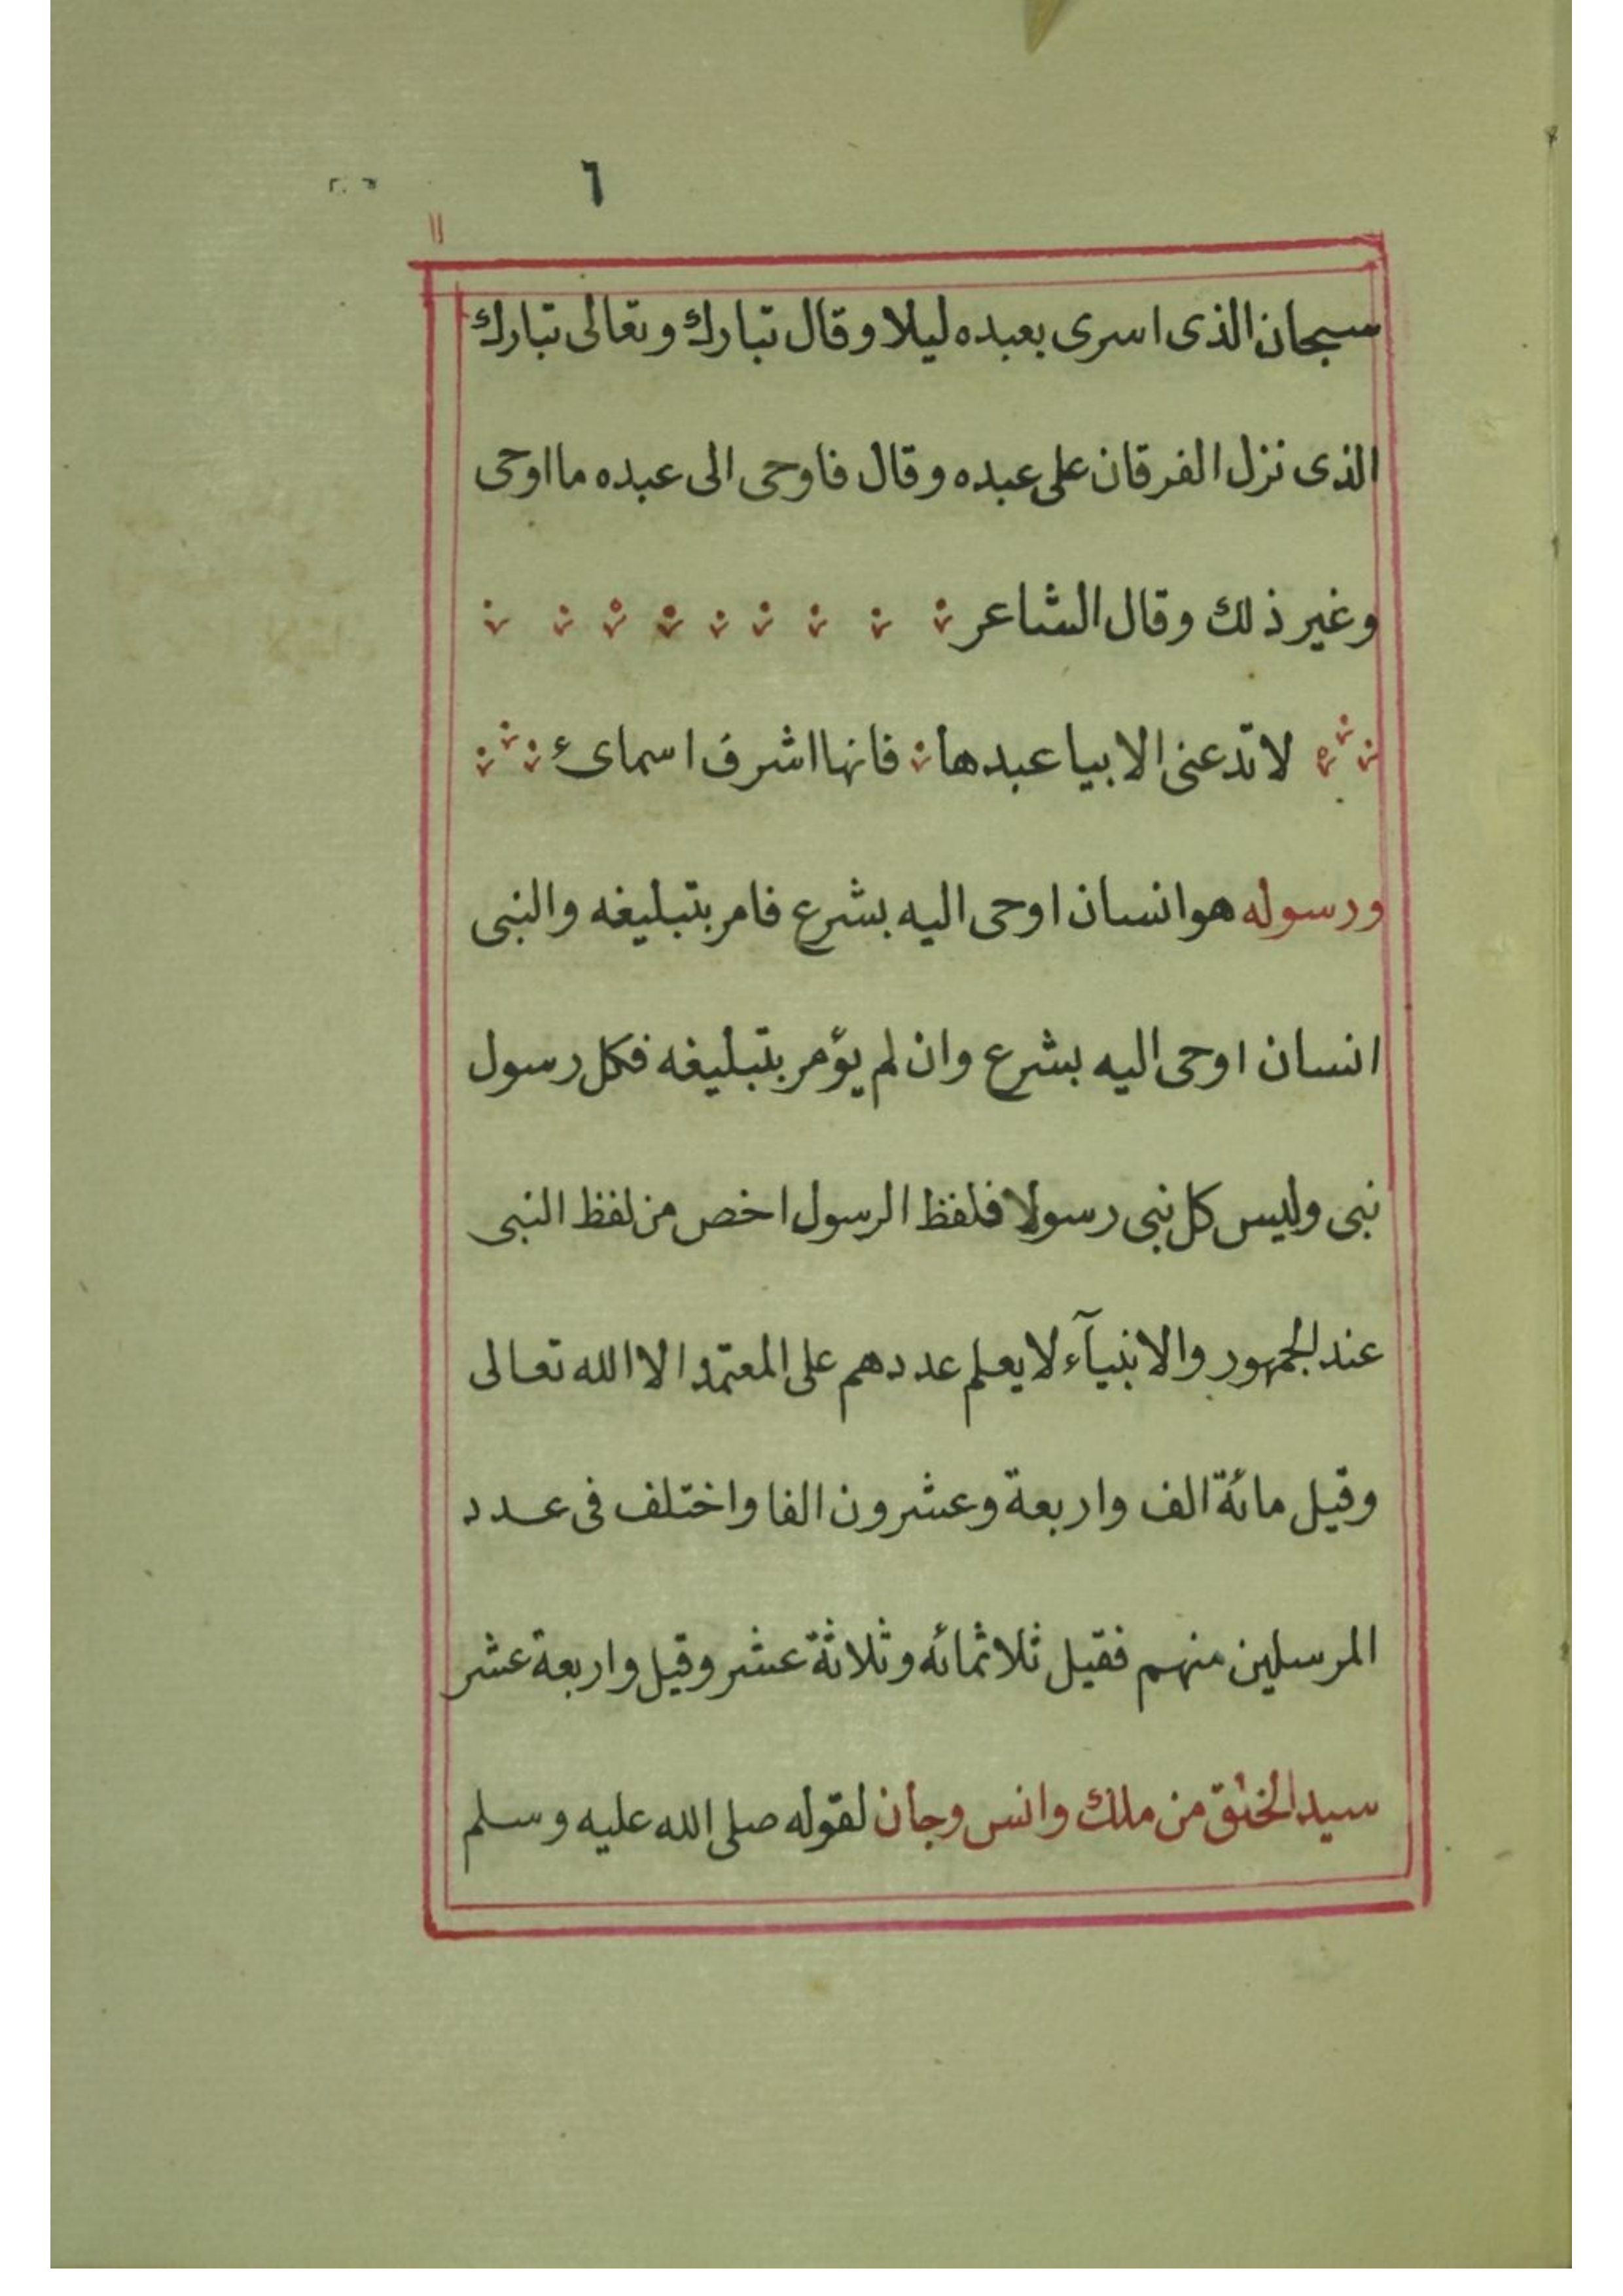 ٦
سبحان الذى اسرى بعبده ليلا وقال تبارك وتعالى تبارك
الذى نزل الفرقان على عبده وقال فاوحى الى عبده ما اوحى
وغير ذلك وقال الشاعر
لا تدعنى الا بيا عبدها فانها اشرف اسماىء
ورسوله هو انسان اوحى اليه بشرع فامر بتبليغه والنبى
انسان اوحى اليه بشرع وان لم يؤمر بتبليغه فكل رسول
نبى وليس كل نبى رسولا فلفظ الرسول اخص من لفظ النبى
عند الجمهور والانبيآء لا يعلم عددهم على المعتمد الا الله تعالى
وقيل مائة الف واربعة وعشرون الفا واختلف فى عدد
المرسلين منهم فقيل ثلاثمائه وثلاثة عشر وقيل واربعة عشر
سيد الخلق من ملك وانس وجان لقوله صلى الله عليه وسلم